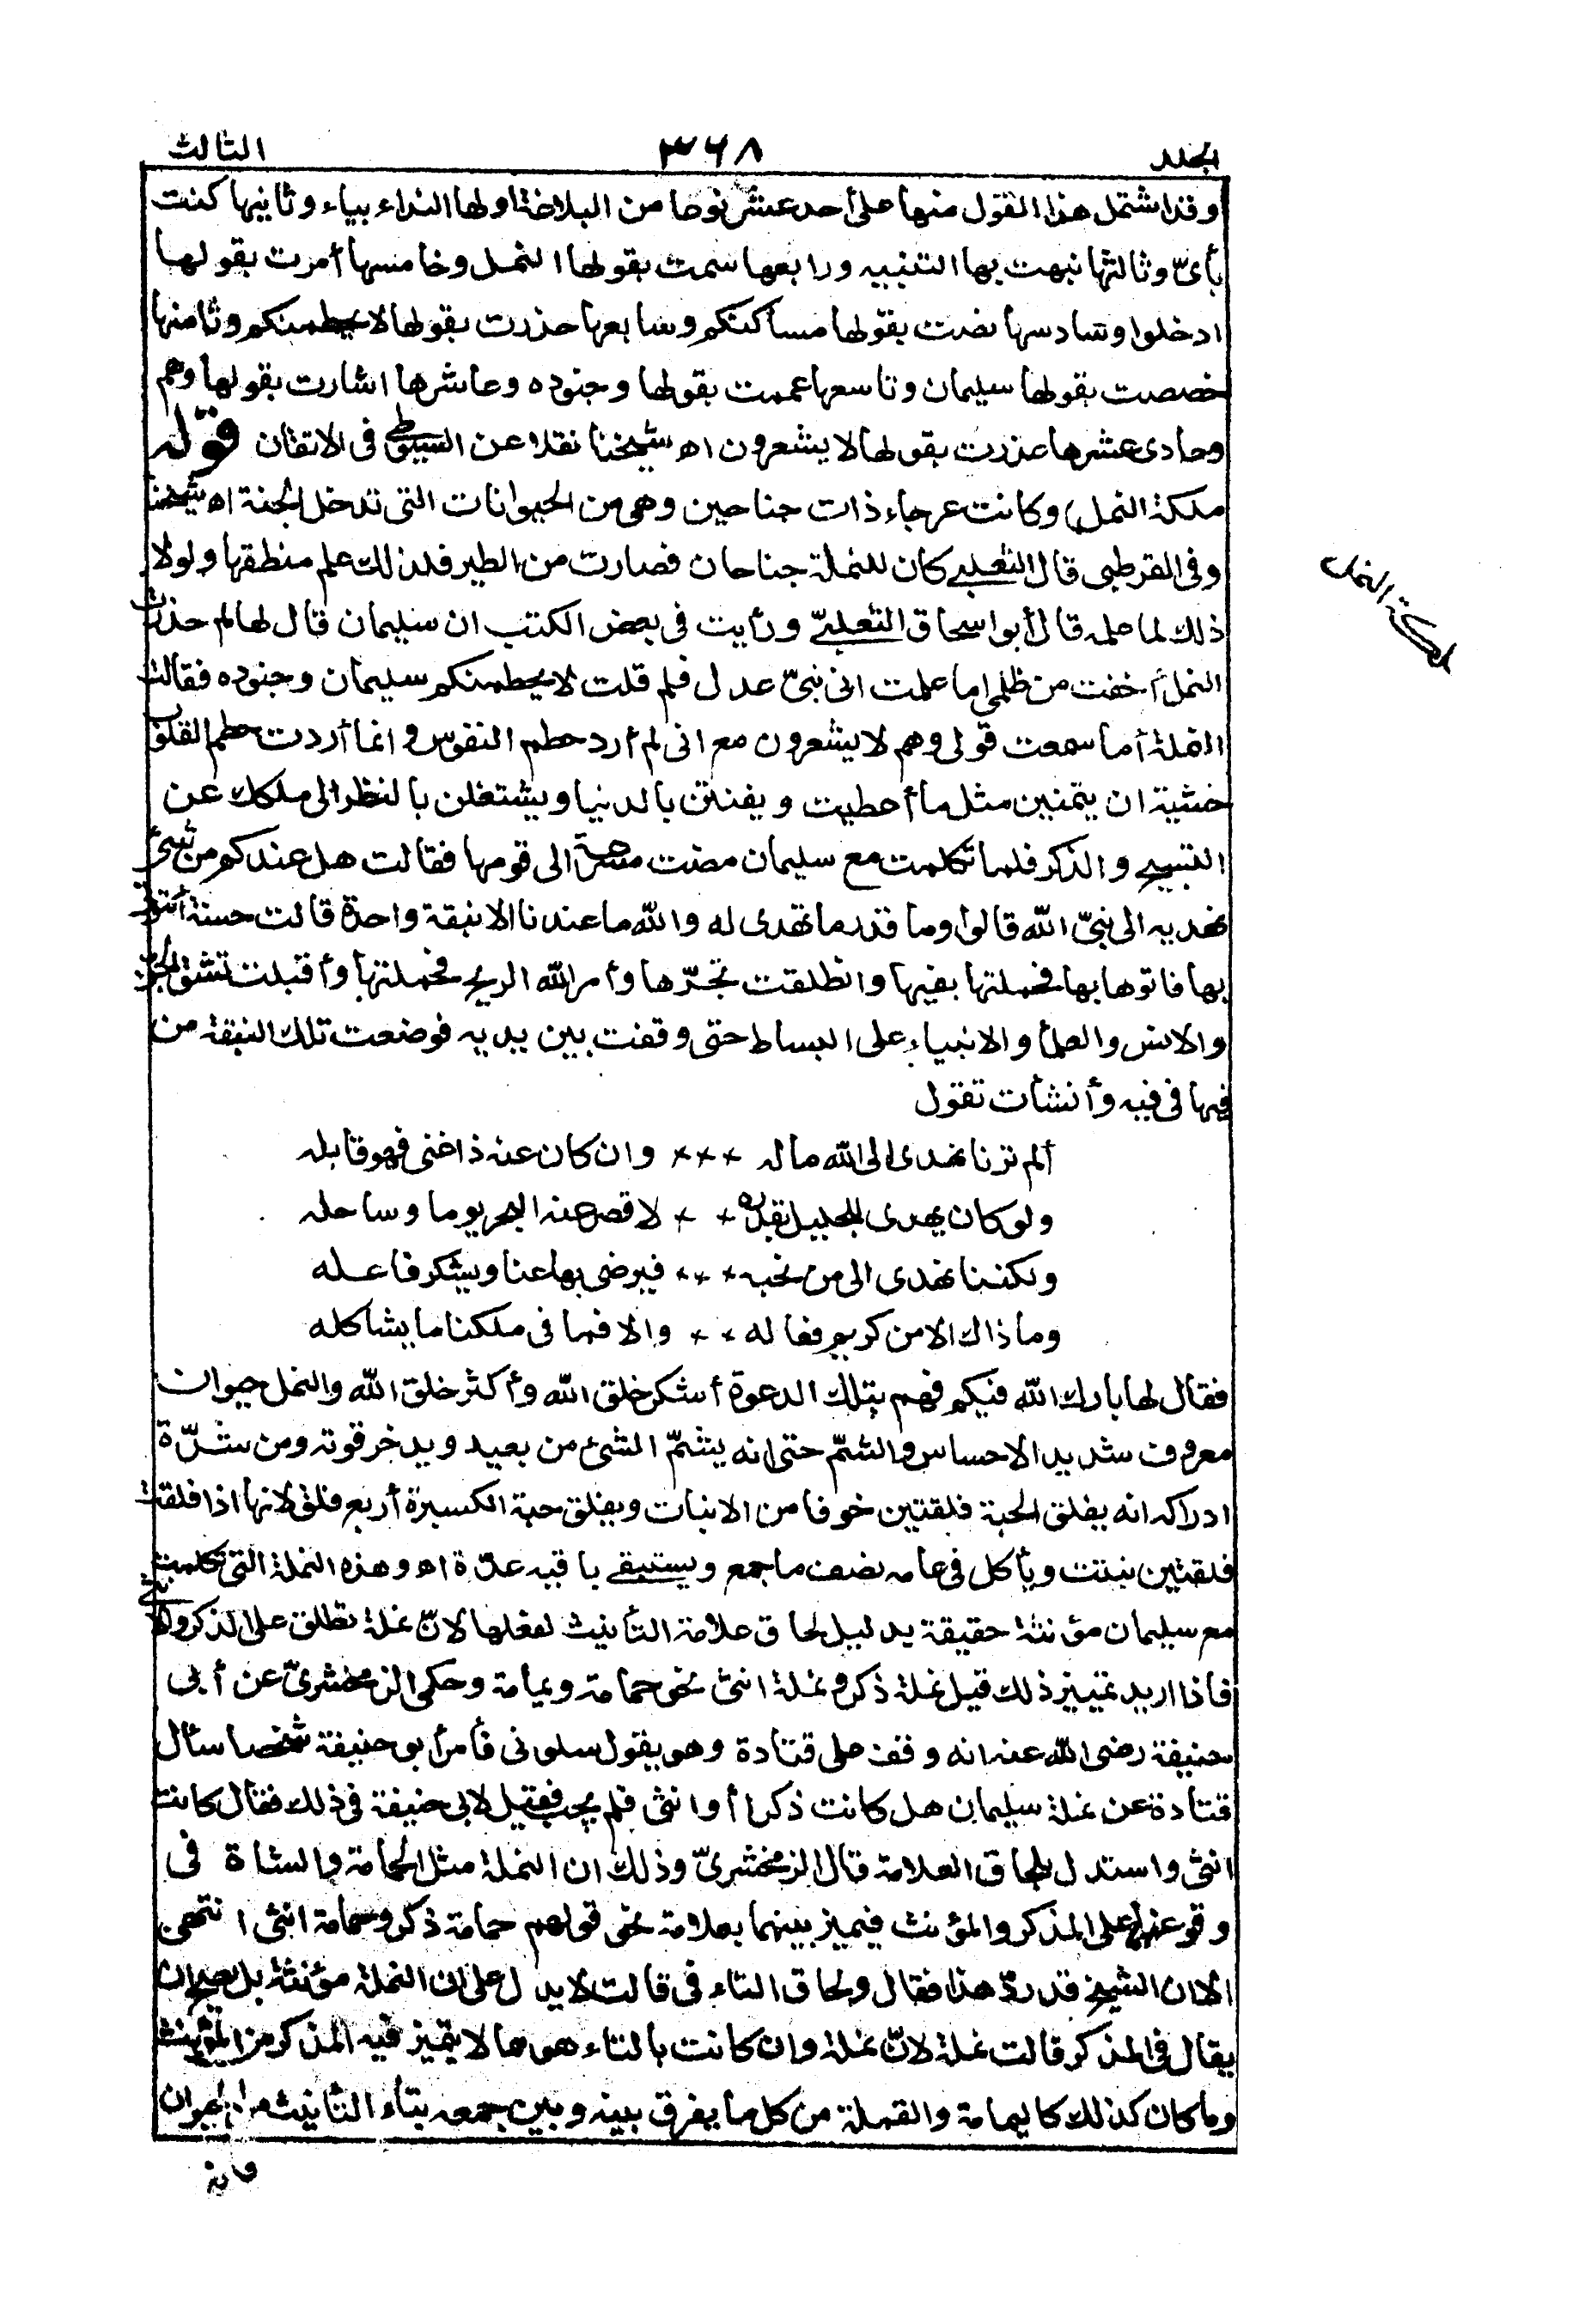 المجلد ٣٦٨ الثالث
وقد اشتمل هذا القول منها على أحد عشر نوعا من البلاغة اولها النداء بياء وثانيها كنت
بأىّ وثالثها نبهت بها التنبيه ورابعها سمت بقولها النمل وخامسها أمرت بقولها
ادخلوا وسادسها نصت بقولها مساكنكم وسابعها حذرت بقولها لا يحطمنكم وثامنها
خصصت بقولها سليمان وتاسعها عممت بقولها وجنوده وعاشرها اشارت بقولها وهم
وحادى عشرها عذرت بقولها لا يشعرون اه شيخنا نقلا عن السيوطى فى الاتقان قوله
ملكة النمل) وكانت عرجاء ذات جناحين وهى من الحيوانات التى تدخل الجنة اه شيخنا
وفى القرطبى قال الثعلبى كان للنملة جناحان فصارت من الطير فلذلك علم منطقها ولولا
ملكة النمل
ذلك لما علمه قال أبو اسحاق الثعلبىّ ورأيت فى بعض الكتب ان سليمان قال لها لم حذرت
النمل أخفت من ظلمى اما علمت انى نبىّ عدل فلم قلت لا يحطمنكم سليمان وجنوده فقالت
النملة أما سمعت قولى وهم لا يشعرون مع انى لم أرد حطم النفوس وانما أردت حطم القلوب
خشية ان يتمنين مثل ما أعطيت ويفتتن بالدنيا ويشتغلن بالنظر الى ملكك عن
التسبيح والذكر فلما تكلمت مع سليمان مضت مسرعة الى قومها فقالت هل عندكم من شئ
نهديه الى نبىّ الله قالوا وما قدر ما نهدى له والله ما عندنا الا نبقة واحدة قالت حسنة ائتونى
بها فاتوها بها فحملتها بفيها وانطلقت تجرّها وأمر الله الريح فحملتها وأقبلت تشق الجن
والانس والعلماء والانبياء على البساط حتى وقفت بين يديه فوضعت تلك النبقة من
فيها فى فيه وأنشأت تقول
ألم ترنا نهدى الى الله ماله ××× وان كان عنه ذا غنى فهو قابله
ولو كان يهدى للجليل بقدره ×× لاقصر عنه البحر يوما وساحله
ولكننا نهدى الى من نحبه ××× فيرضى بها عنا ويشكر فاعله
وما ذاك الا من كريم فعاله ×× والا فما فى ملكنا ما يشاكله
فقال لها بارك الله فيكم فهم بتلك الدعوة أشكر خلق الله وأكثر خلق الله والنمل حيوان
معروف شديد الاحساس والشمّ حتى انه يشمّ الشئ من بعيد ويدخر قوته ومن شدّة
ادراكه انه يفلق الحبة فلقتين خوفا من الانبات ويفلق حبة الكسبرة أربع فلق لانها اذا فلقت
فلقتين نبتت ويأكل فى عامه نصف ما جمع ويستبقى باقيه عدّة اه وهذه النملة التى تكلمت
مع سليمان مؤنثة حقيقة بدليل لحاق علامة التأنيث لفعلها لانّ نملة تطلق على الذكر والانثى
فاذا اريد تمييز ذلك قيل نملة ذكر ونملة انثى نحو حمامة ويمامة وحكى الزمخشرىّ عن أبى
حنيفة رضى الله عنه انه وقف على قتادة وهو يقول سلونى فأمر أبو حنيفة شخصا سأل
قتادة عن نملة سليمان هل كانت ذكرا أو انثى فلم يجب فقيل لابى حنيفة فى ذلك فقال كانت
انثى واستدل بلحاق العلامة قال الزمخشرىّ وذلك ان النملة مثل الحمامة والشاة فى
وقوعها على المذكر والمؤنث فيميز بينهما بعلامة نحو قولهم حمامة ذكر وحمامة انثى انتهى
الا ان الشيخ قد ردّ هذا فقال ولحاق التاء فى قالت لا يدل على ان النملة مؤنثة بل يصح ان
يقال فى المذكر قالت نملة لانّ نملة وان كانت بالتاء هو مما لا يتميز فيه المذكر من المؤنث
وما كان كذلك كاليمامة والقملة من كل ما يفرق بينه وبين جمعه بتاء التأنيث من الحيوان
فانه